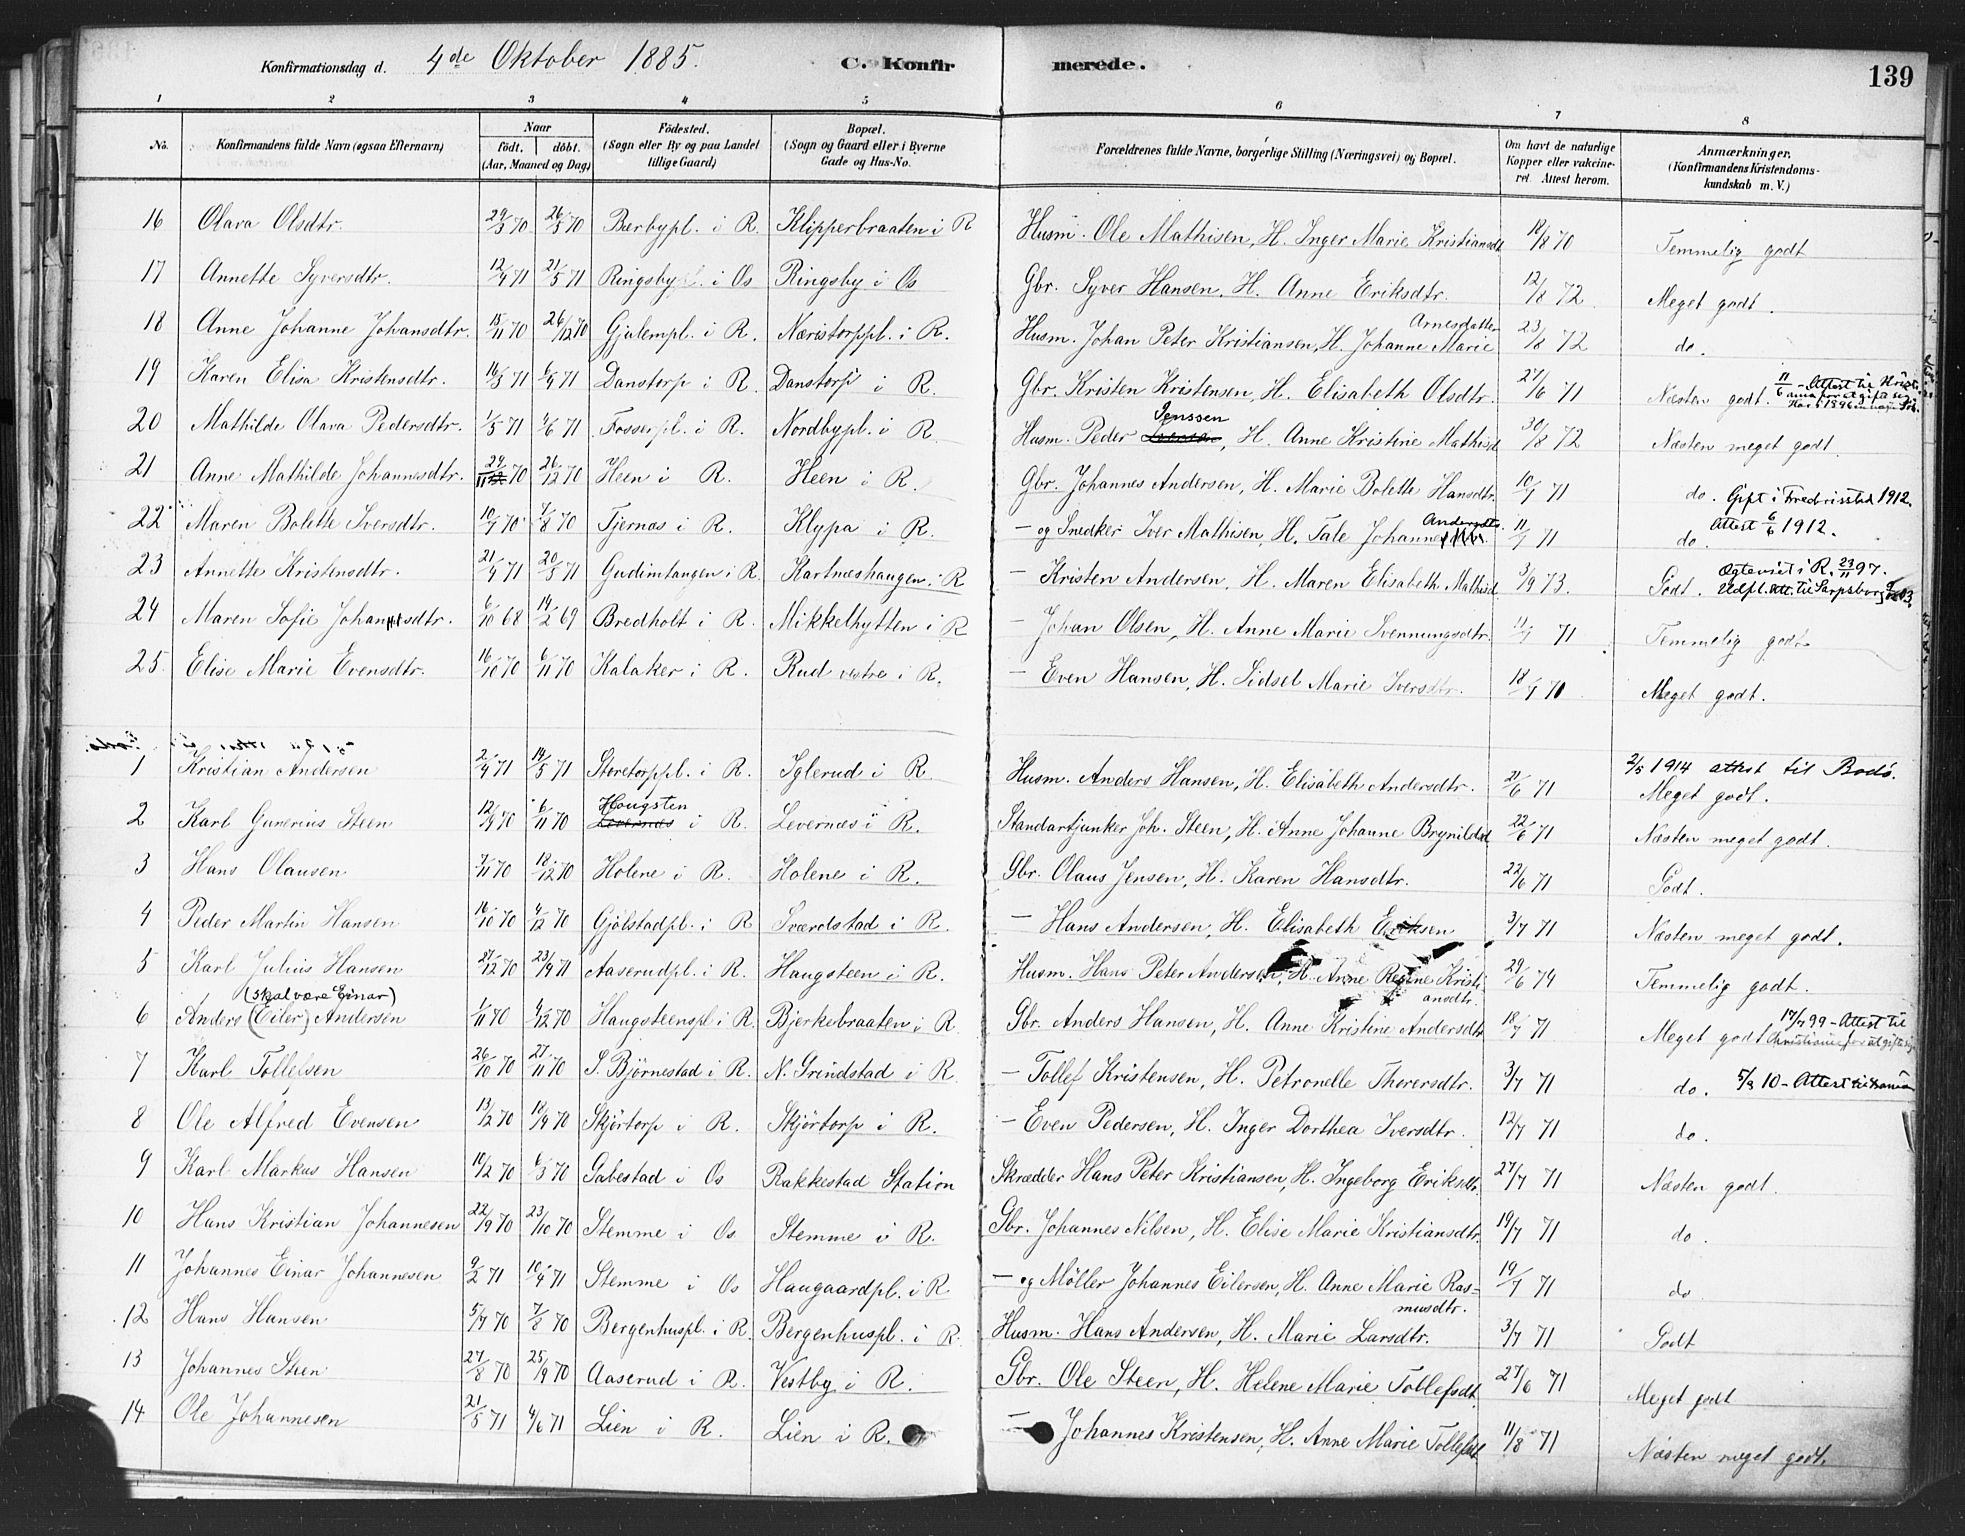 Konfirmationsdag d. 4de Oktober 1885. C. Konfirmerede. 139
1 2 3 4 5 6 7 8
No. Konfirmandens fulde Navn (ogsaa Efternavn) Naar født. døbt. (Aar, Maaned og Dag) Fødested. (Sogn eller By og paa Landet tillige Gaard) Bopæl. (Sogn og Gaard eller i Byerne Gade og Hus-No. Forældrenes fulde Navne, borgerlige Stilling (Næringsvei) og Bopæl. Om havt de naturlige Kopper eller vakcineret. Attest herom. Anmærkninger. (Konfirmandens Kristendomskundskab m. V.)
16 Olava Olsdtr. 29/3 70 26/5 70 Bærbypl. i R. Klipperbraaten i R Husm. Ole Mathisen, H. Inger Marie Kristiansdt 18/8 70 Temmelig godt
17 Annette Syversdtr. 12/4 71 21/5 71 Ringsby i Os Ringsby i Os Gbr. Syver Hansen, H. Anne Eriksdtr. 12/8 72 Meget godt.
18 Anne Johanne Johansdtr. 15/11 70 26/12 70 Gjulempl. i R. Næristorppl. i R. Husm. Johan Peter Kristiansen, H. Johanne Marie Arnesdatter 23/8 72 do.
19 Karen Elisa Kristensdtr. 16/3 71 6/4 71 Danstorp i R. Danstorp i R. Gbr. Kristen Kristensen, H. Elisabeth Olsdtr. 27/6 71 Næsten godt. 11/6 - Attest til Kristiania for at gifte sig
20 Mathilde Olava Pedersdtr. 1/5 71 4/6 71 Fosserpl. i R. Nordbypl. i R. Husm. Peder Jenssen, H. Anne Kristine Mathisd 30/8 72 Næsten meget godt.
21 Anne Mathilde Johannesdtr. 24/11 70 26/12 70 Heen i R. Heen i R. Gbr. Johannes Andersen, H. Marie Bolette Hansdtr. 10/7 71 do. Gift i Fredrisstad 1912.
22 Maren Bolette Iversdtr. 10/7 70 7/8 70 Tjernæs i R. Klypa i R. — og Snedker Iver Mathisen, H. Tale Johanne Andersdtr. 11/7 71 do. Attest 6/6 1912.
23 Annette Kristensdtr. 21/4 71 20/5 71 Gudimtangen i R. Kartnæshaugen i R — Kristen Andersen, H. Maren Elisabeth Mathisd 3/9 73. Godt. Ægteviet i R. 23/11 97. Udfl. att. til Sarpsborg
24 Maren Sofie Johansdtr. 6/10 68 14/2 69 Bredholt i R. Mikkelhytten i R — Johan Olsen, H. Anne Marie Svennungsdtr. 11/7 71 Temmelig godt
25 Elise Marie Evensdtr. 16/10 70 6/11 70 Kalaker i R. Rud vestre i R. — Even Hansen, H. Sidsel Marie Iversdtr. 18/7 70 Meget godt.
1 Kristian Andersen 2/4 71 14/5 71 Storetorppl. i R. Iglerud i R Husm. Anders Hansen, H. Elisabeth Andersdtr. 21/6 71 2/5 1914 attest til Bodö. Meget godt.
2 Karl Gunerius Steen 12/9 70 6/11 70 Haugsten i R. Levernæs i R. Standartjunker Joh. Steen, H. Anne Johanne Brynildsd 22/6 71 Næsten meget godt.
3 Hans Olausen 7/11 70 18/12 70 Holene i R. Holene i R. Gbr. Olaus Jensen, H. Karen Hansdtr. 22/6 71 Godt.
4 Peder Martin Hansen 16/10 70 4/12 70 Gjølstadpl. i R Sværdstad i R. — Hans Andersen, H. Elisabeth Eriksen 3/7 71 Næsten meget godt.
5 Karl Julius Hansen 27/12 70 23/4 71 Aaserudpl. i R. Haugsteen i R. Husm. Hans Peter Andersen, H. Anne Regine Kristiansdtr. 29/6 74 Temmelig godt.
6 Anders (Eiler) Andersen (skal være Einar) 1/11 70 4/12 70 Haugsteenspl i R. Bjerkebraaten i R. Gbr. Anders Hansen, H. Anne Kristine Andersdtr 18/7 71 Meget godt 17/7 99 - Attest til Christiania for at gifte sig
7 Karl Tollefsen 26/10 70 27/11 70 S. Bjørnestad i R. N. Grindstad i R. — Tollef Kristensen, H. Petronelle Thorersdtr. 3/7 71 do. 5/3 10 - Attest til
8 Ole Alfred Evensen 13/2 70 18/4 70 Skjørtorp i R. Skjørtorp i R. — Even Pedersen, H. Inger Dorthea Iversdtr. 12/7 71 do.
9 Karl Markus Hansen 10/2 70 6/3 70 Gabestad i Os Rakkestad Station Skrædder Hans Peter Kristiansen, H. Ingeborg Eriksdtr. 27/7 71 Næsten godt.
10 Hans Kristian Johannesen 22/9 70 23/10 70 Stemme i Os Stemme i R. Gbr. Johannes Nilsen, H. Elise Marie Kristiansdtr. 19/7 71 do.
11 Johannes Einar Johannesen 9/2 71 10/4 71 Stemme i Os Haugaardpl. i R — og Møller Johannes Eilersen, H. Anne Marie Rasmusdtr. 19/7 71 do
12 Hans Hansen 5/7 70 7/8 70 Bergenhuspl. i R Bergenhuspl. i R. Husm. Hans Andersen, H. Marie Larsdtr. 3/7 71 Godt
13 Johannes Steen 27/8 70 25/9 70 Aaserud i R. Vestby i R. Gbr. Ole Steen, H. Helene Marie Tollefsdt. 27/6 71 Meget godt
14 Ole Johannesen 21/5 71 4/6 71 Lien i R. Lien i R. — Johannes Kristensen, H. Anne Marie Tollefsdt 11/8 71 Næsten meget godt.